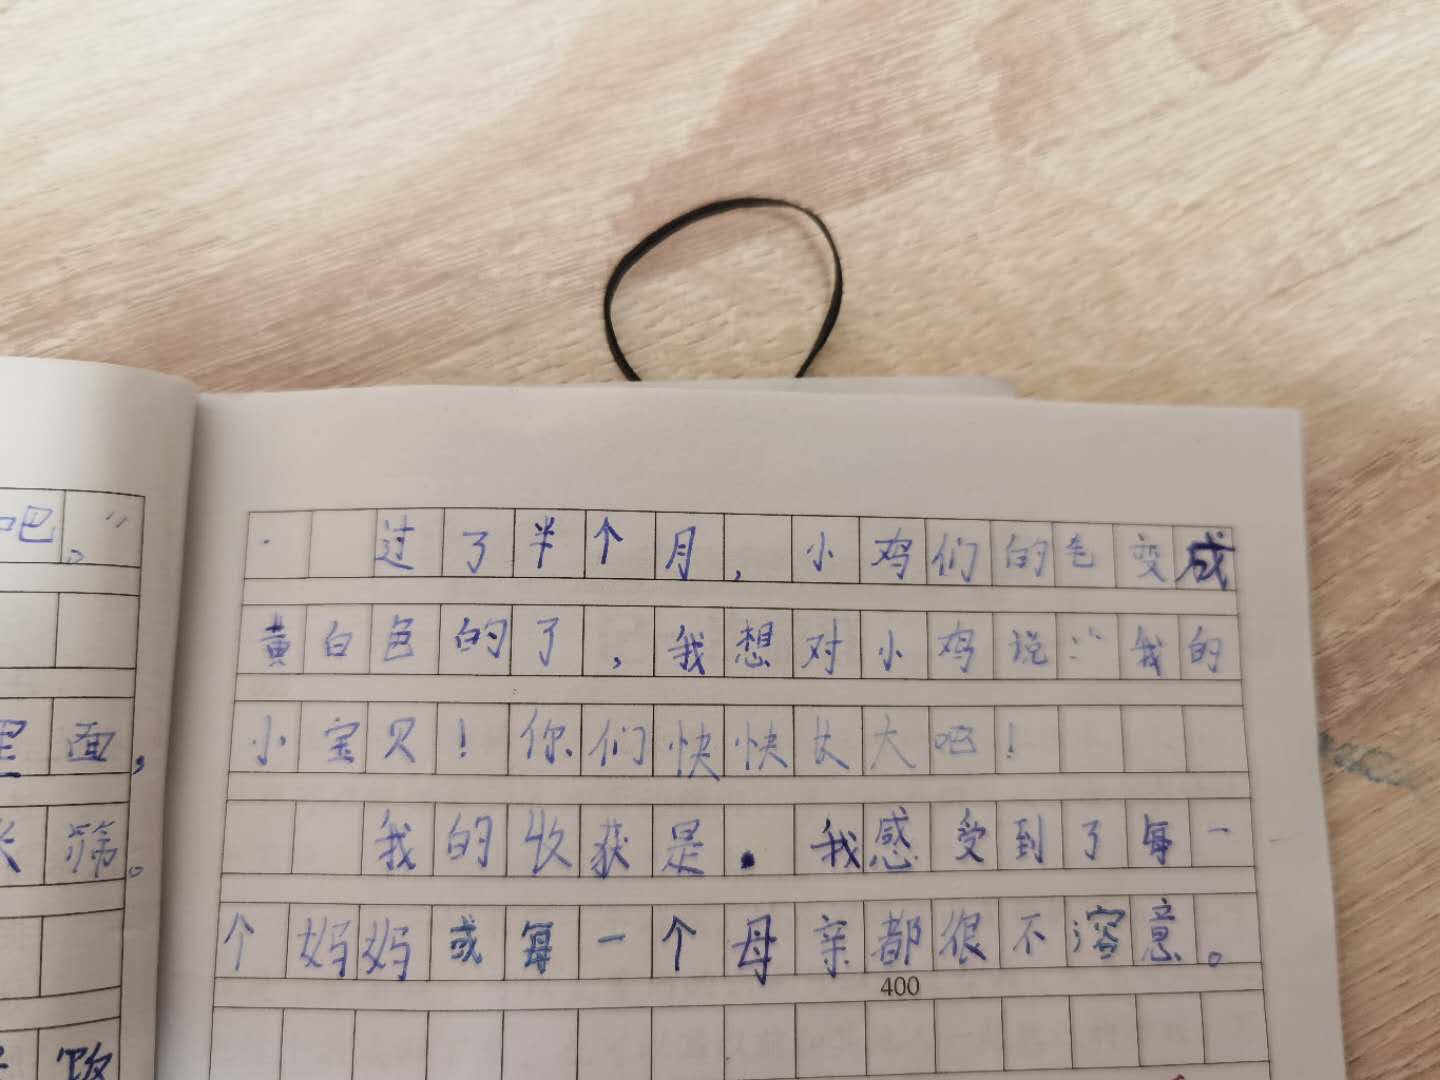 吧。”
面，
筛。
饭
过了半个月，小鸡们的毛变成
黄白色的了，我想对小鸡说：“我的
小宝贝！你们快快长大吧！
我的收获是.我感受到了每一
个妈妈或每一个母亲都很不溶意。
400